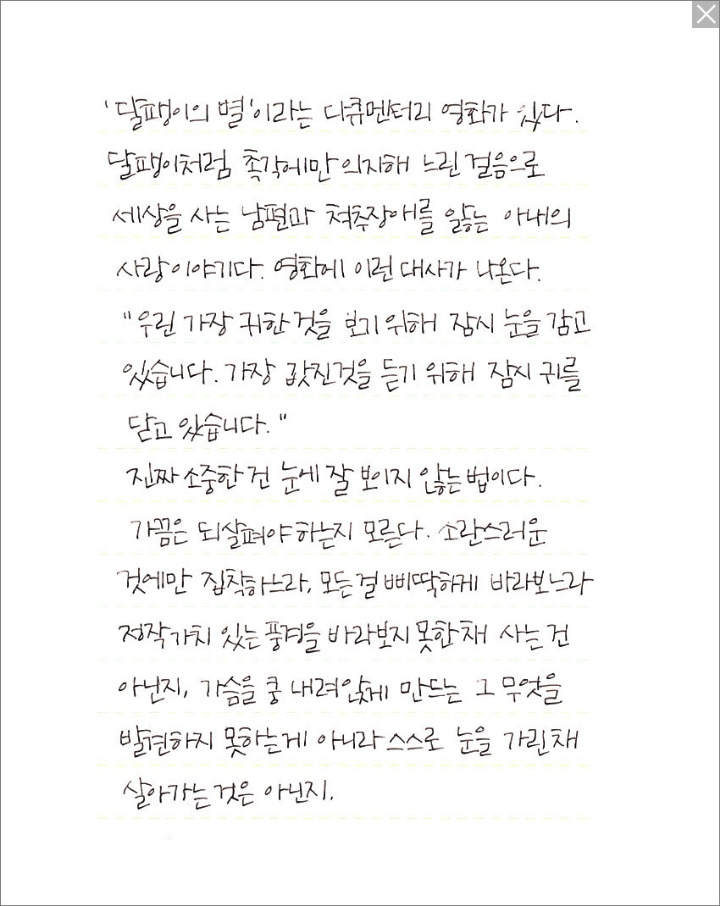 '달팽이의 별'이라는 다큐멘터리 영화가 있다.
달팽이처럼 촉각에만 의지해 느린 걸음으로
세상을 사는 남편과 척추장애를 앓는 아내의
사랑이야기다. 영화에 이런 대사가 나온다.
"우린 가장 귀한 것을 보기 위해 잠시 눈을 감고
있습니다. 가장 값진것을 듣기 위해 잠시 귀를
닫고 있습니다."
진짜 소중한 건 눈에 잘 보이지 않는 법이다.
가끔은 되살펴야 하는지 모른다. 소란스러운
것에만 집착하느라, 모든 걸 삐딱하게 바라보느라
정작 가치 있는 풍경을 바라보지 못한 채 사는 건
아닌지, 가슴을 쿵 내려앉게 만드는 그 무엇을
발견하지 못하는게 아니라 스스로 눈을 가린 채
살아가는 것은 아닌지.